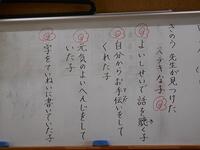 きのう 先生が見つけた、
ステキな子
よいしせいで 話を聴く子
自分からお手伝いをして
くれた子
元気のよいへんじをして
いた子
字をていねいに書いていた子